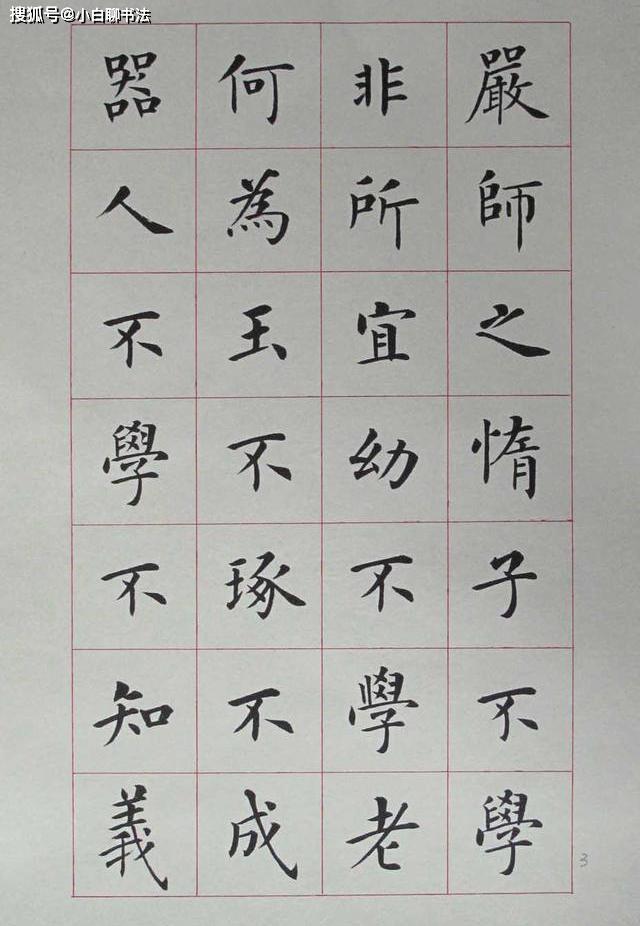 搜狐号@小白聊书法
嚴師之惰子不學
非所宜幼不學老
何為玉不琢不成
器人不學不知義
3